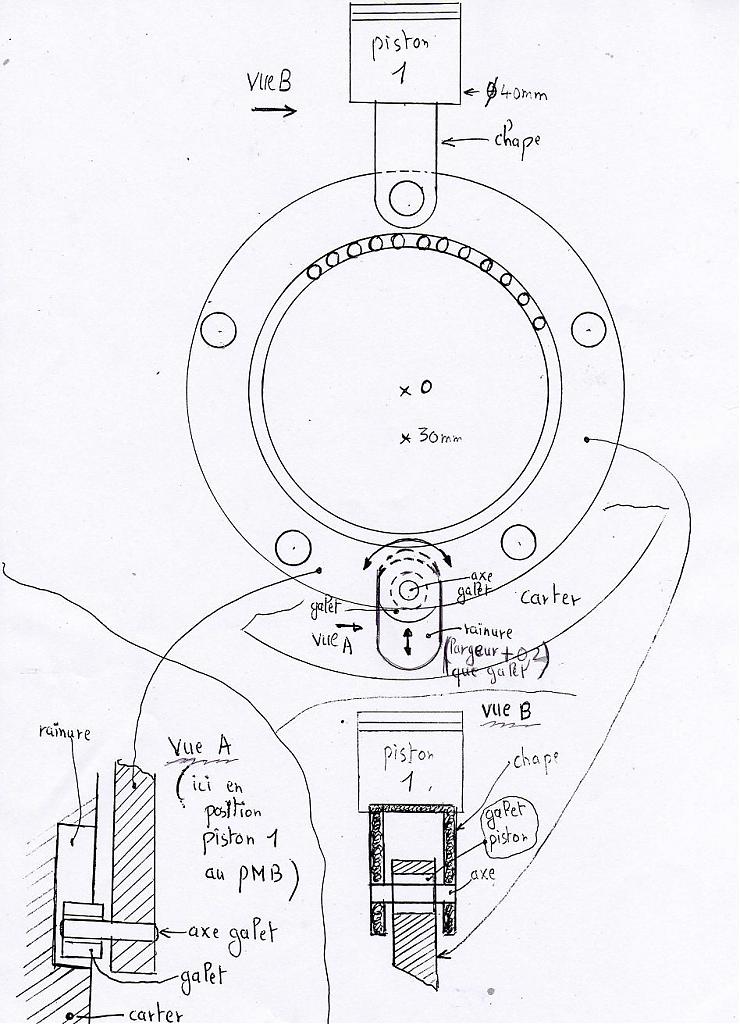 piston
1
vue B
ø40mm
chape
x O
x 30mm
axe
galet
galet
vue A
carter
rainure
(largeur +0,2
que galet)
vue B
rainure
vue A
(ici en
position
piston 1
au PMB)
piston
1
chape
galet
piston
axe
axe galet
galet
carter